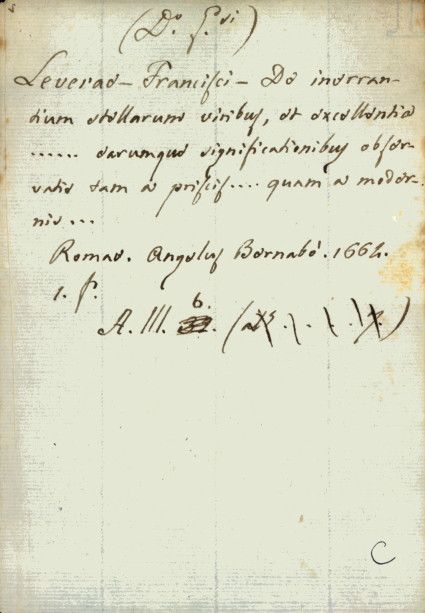 (Do. G.si)
Leverae - Francisci - De inerran-
tium stellarum viribus, et excellentia
...... earumque significationibus obser-
vatis tam a priscis.... quam a moder-
nis...
Romae. Angelus Bernabò. 1664.
1. f.
6.
A. III.
C